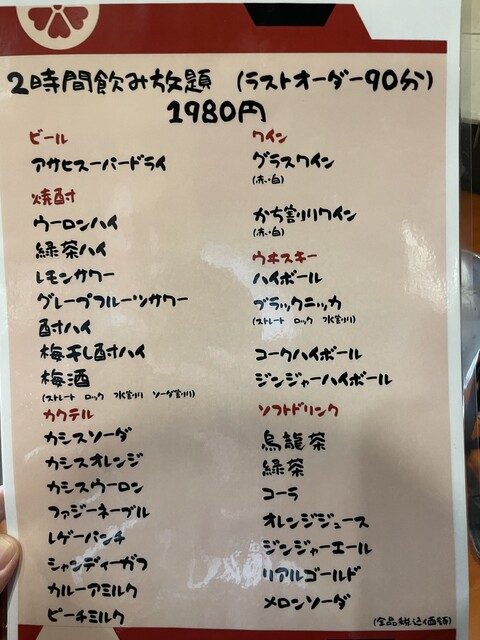 2時間飲み放題 (ラストオーダー90分)
1980円
ビール
アサヒスーパードライ
焼酎
ウーロンハイ
緑茶ハイ
レモンサワー
グレープフルーツサワー
酎ハイ
梅干し酎ハイ
梅酒
(ストレート ロック 水割り ソーダ割り)
カクテル
カシスソーダ
カシスオレンジ
カシスウーロン
ファジーネーブル
レゲーパンチ
シャンディーガフ
カルーアミルク
ピーチミルク
ワイン
グラスワイン
(赤・白)
かち割りワイン
(赤・白)
ウヰスキー
ハイボール
ブラックニッカ
(ストレート ロック 水割り)
コークハイボール
ジンジャーハイボール
ソフトドリンク
烏龍茶
緑茶
コーラ
オレンジジュース
ジンジャーエール
リアルゴールド
メロンソーダ
(全品税込価額)